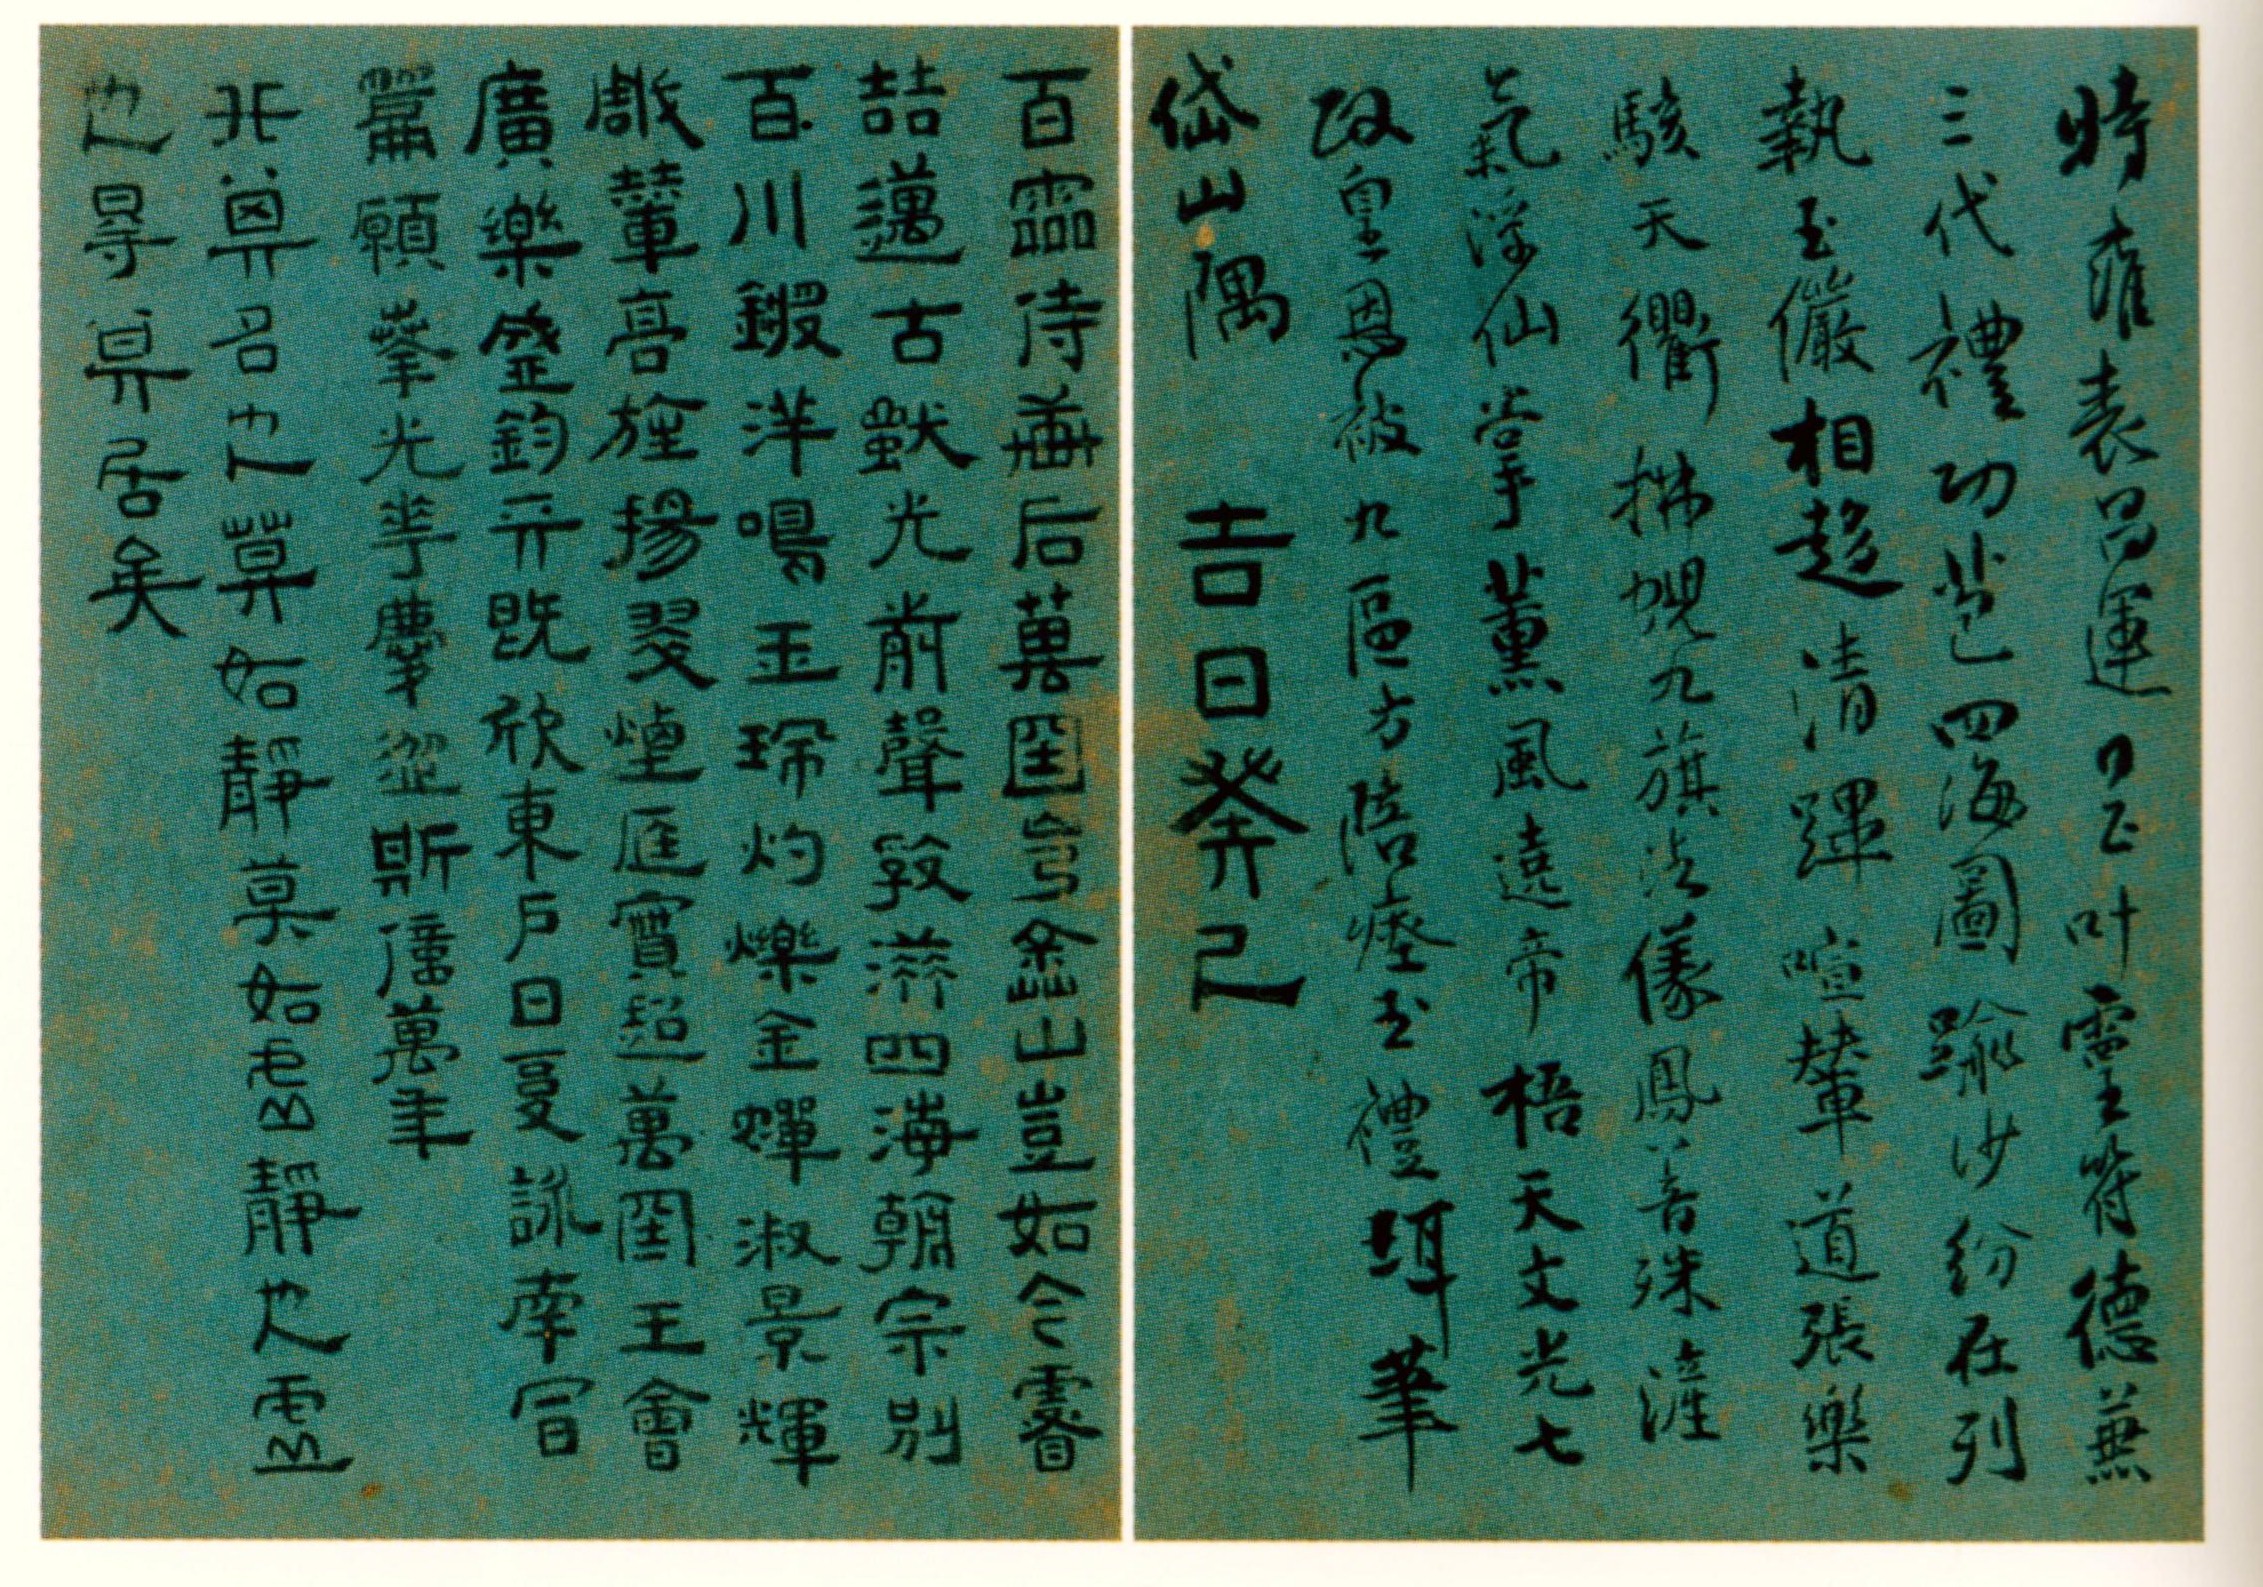 時雍表昌運日正叶靈符德兼
三代禮功苞四海圖踰沙紛在列
執玉儼相趍清蹕喧輦道張樂
駭天衢拂蜺九旗儀鳳八音殊
氣浮仙掌薰風遶帝梧天文光七
政皇恩被九區方陪瘞玉禮珥筆
岱山隅 吉日癸巳
百靈侍軒后萬國塗山豈如今睿
喆邁古獸光前聲教溢四海朝宗別
百川鏘洋鳴玉珮灼爍金蟬淑景輝
彫輦高旌揚翠煙庭實超萬國王會
廣樂盛鈞天既欣東戶日夏詠南風
篇願奉光華慶從斯億萬年
其名也莫如靜莫如虛靜也虛
也得其居矣